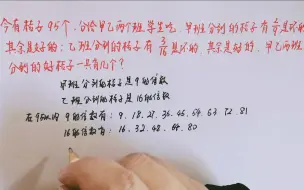 今有桔子95个,分给甲乙两个班学生吃,甲班分到的桔子有2/9是坏的,
其余是好的;乙班分到的桔子有3/16是坏的,其余是好的,甲乙两班
分到的好桔子一共有几个?
甲班分到的桔子是9的倍数
乙班分到的桔子是16的倍数
在95以内 9的倍数有:9、18、27、36、45、54、63、72、81
16的倍数有:16、32、48、64、80